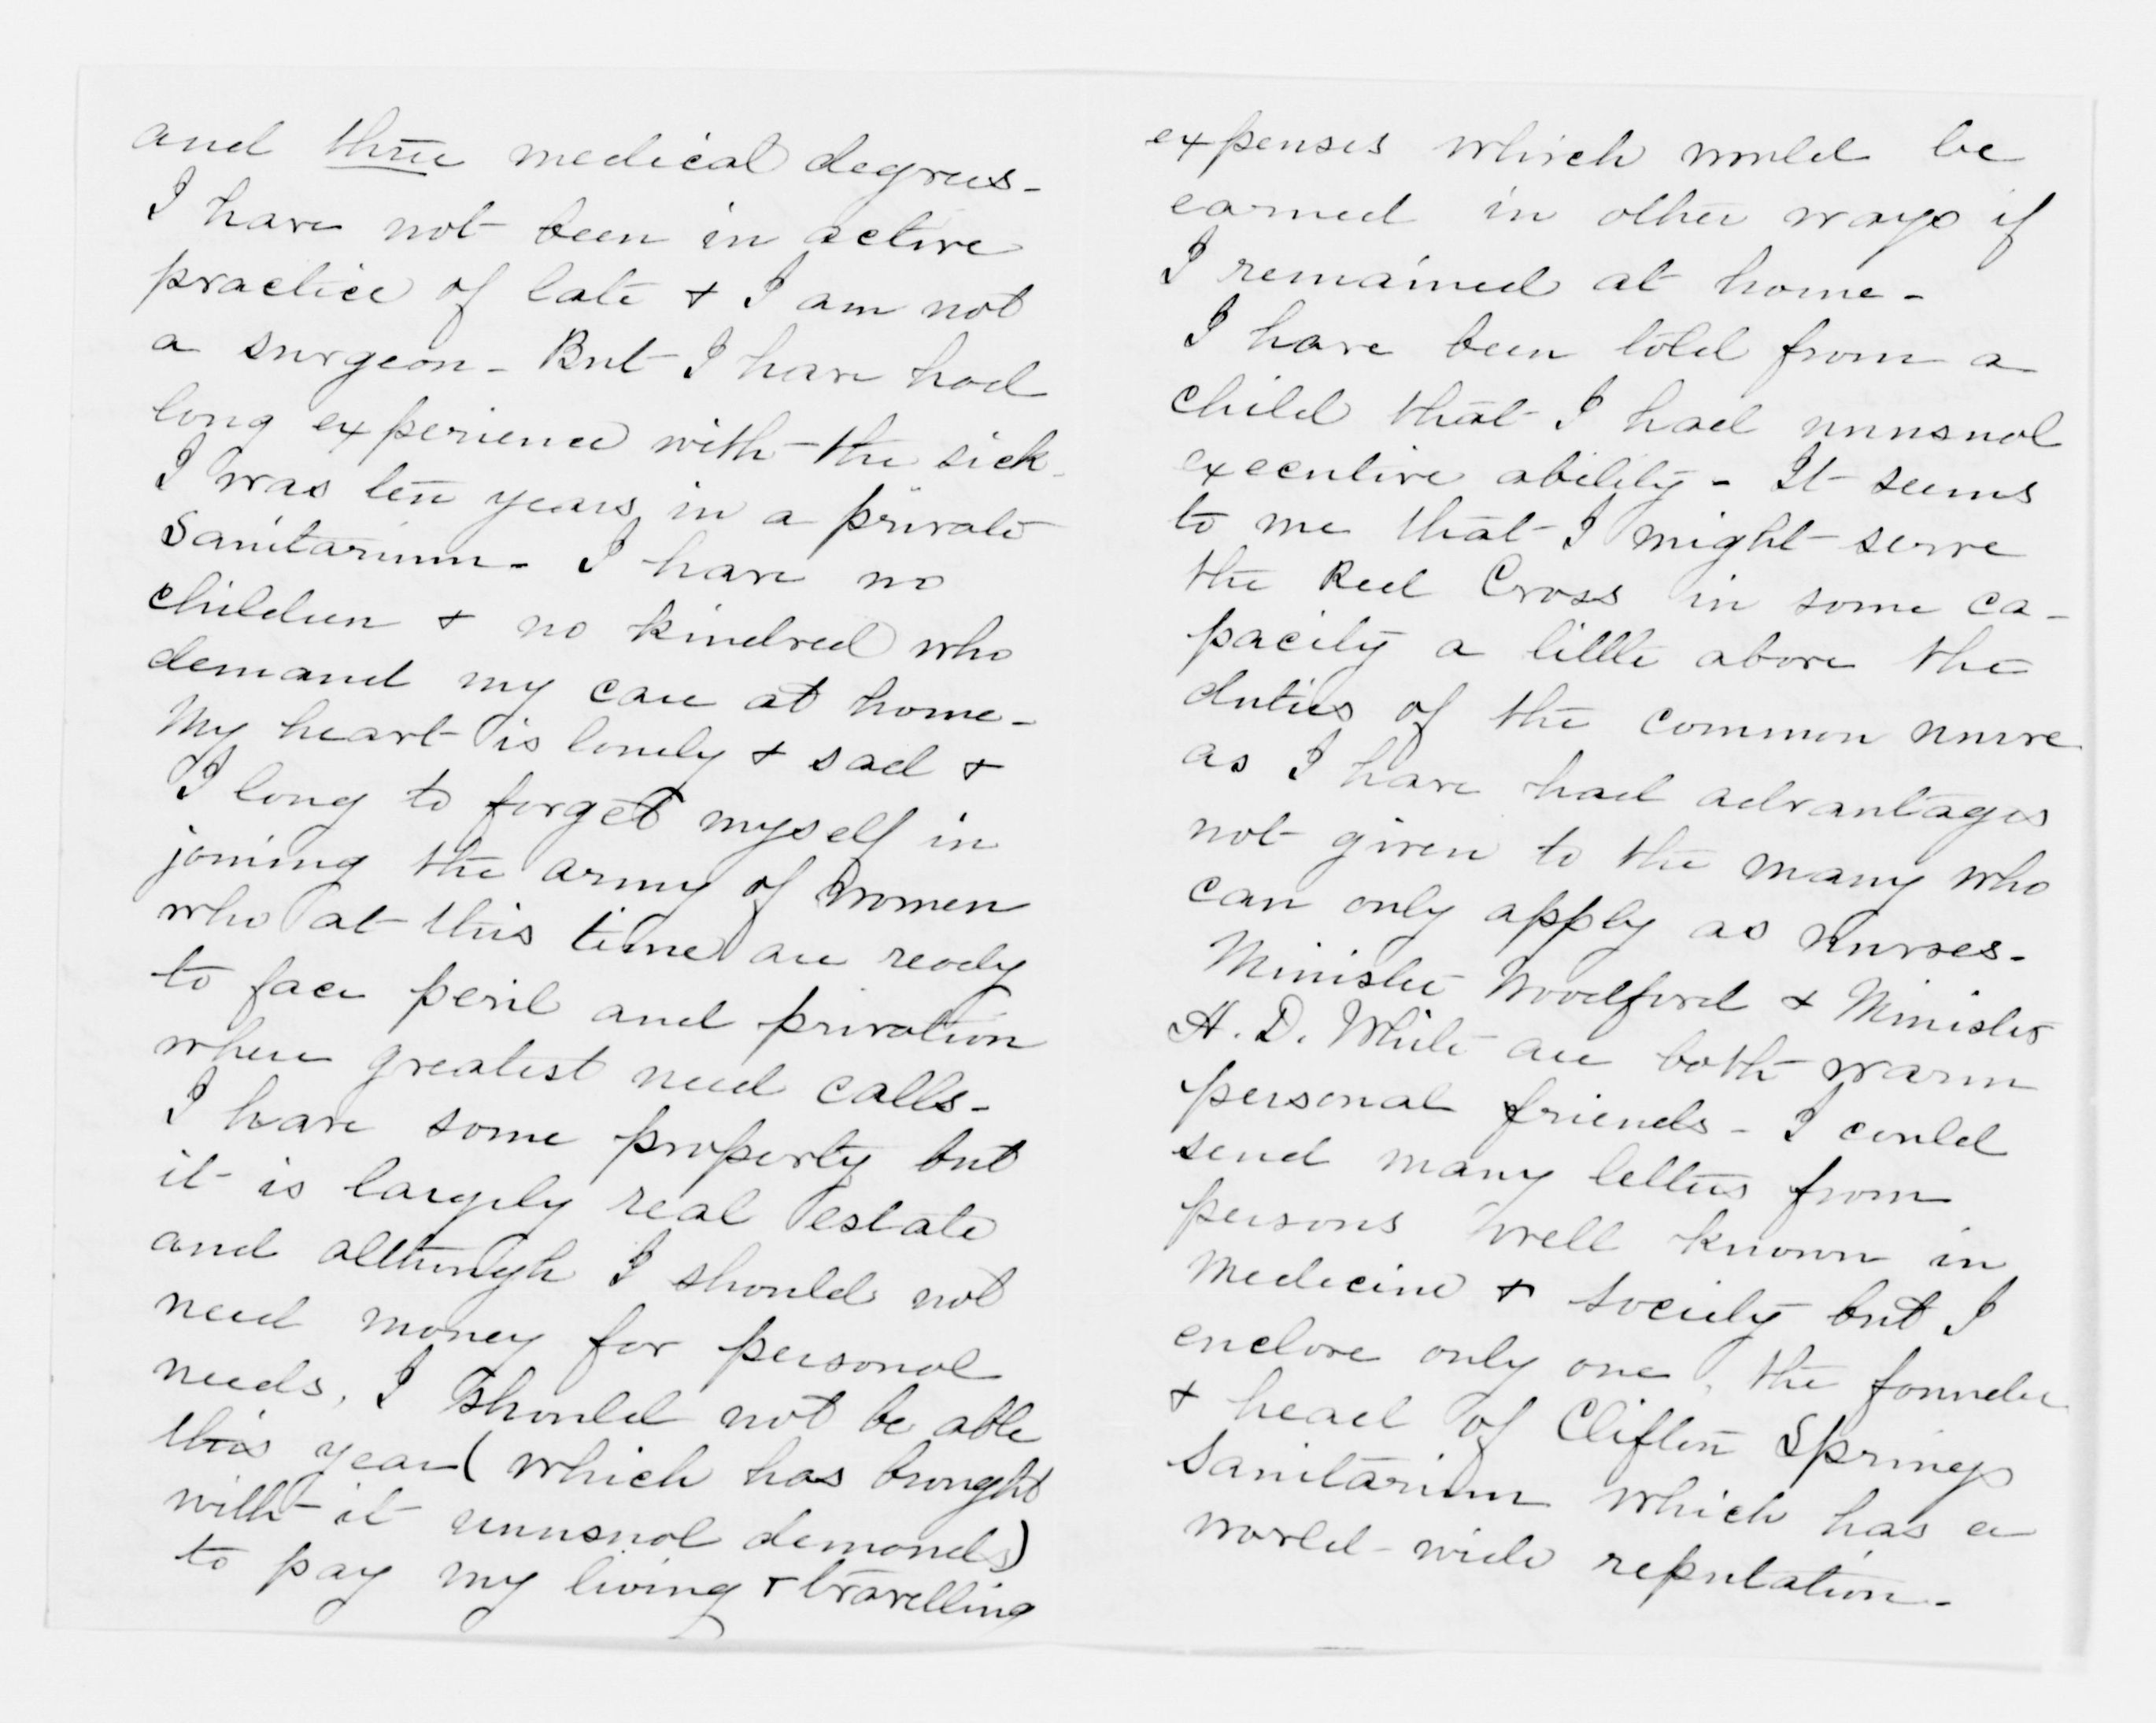 and three medical degrees-
I have not been in active
practice of late + I am not
a surgeon - But I have had
long experience with the sick-
I was ten years in a private
Sanitarium - I have no
children + no kindred who
demand my care at home -
My heart is lonely + sad +
I long to forget myself in
joining the army of women
who at this time are ready
to face peril and privation
where greatest need calls -
I have some property but
it is largely real estate
and although I should not
need money for personal
needs, I should not be able
this year ( which has brought
with it unusual demands)
to pay my living + travelling
expenses which would be
earned in other ways if
I remained at home -
I have been told from a
child that I had unusual
executive ability - It seems
to me that I might serve
the Red Cross in some ca-
pacity a little above the
duties of the common nurse
as I have had advantages
not given to the many who
can only apply as nurses -
Minister Woodford + Minister
A. D. White are both warm
personal friends - I could
send many letters from
persons well known in
Medicine + Society but I
enclose only one, the founder
+ head of Clifton Springs
Sanitarium which has a
world-wide reputation -